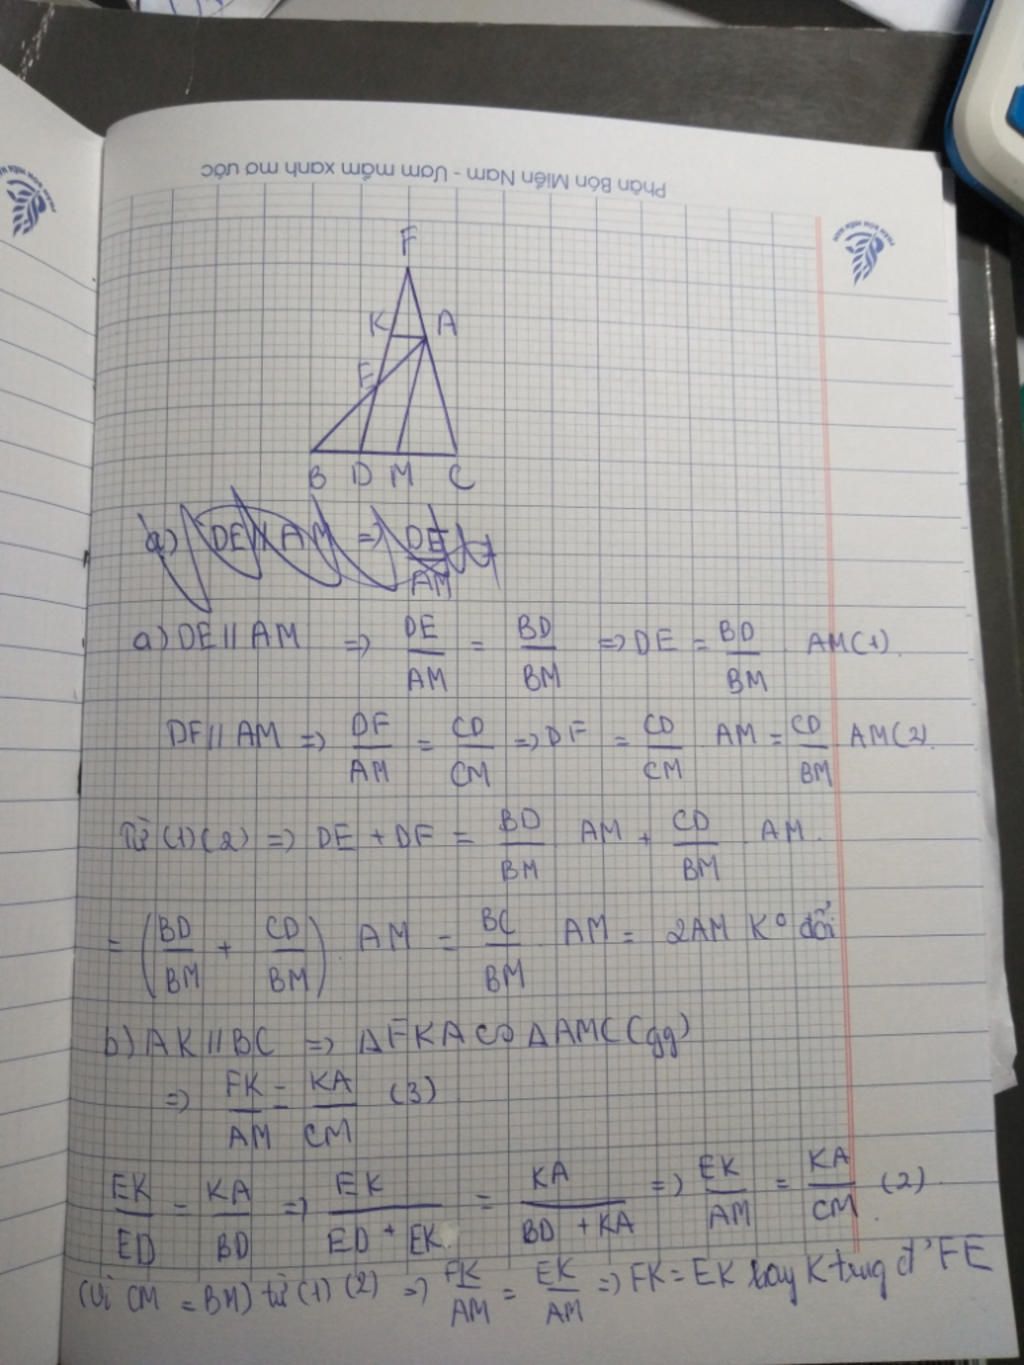 Phân Bón Miền Nam - Ươm mầm xanh mơ ước
F
K A
E
B D M C
a) DE // AM => DE/AM
a) DE // AM => DE/AM = BD/BM => DE = BD/BM . AM (1).
DF // AM => DF/AM = CD/CM => DF = CD/CM AM = CD/BM AM (2).
Từ (1) (2) => DE + DF = BD/BM AM + CD/BM . AM.
= (BD/BM + CD/BM) . AM = BC/BM AM = 2AM K° đổi
b) AK // BC => Δ FKA ∽ Δ AMC (gg)
=> FK/AM = KA/CM (3)
EK/ED = KA/BD => EK/(ED + EK) = KA/(BD + KA) => EK/AM = KA/CM (2).
(vì CM = BM) từ (1) (2) => FK/AM = EK/AM => FK = EK hay K trung đ' FE